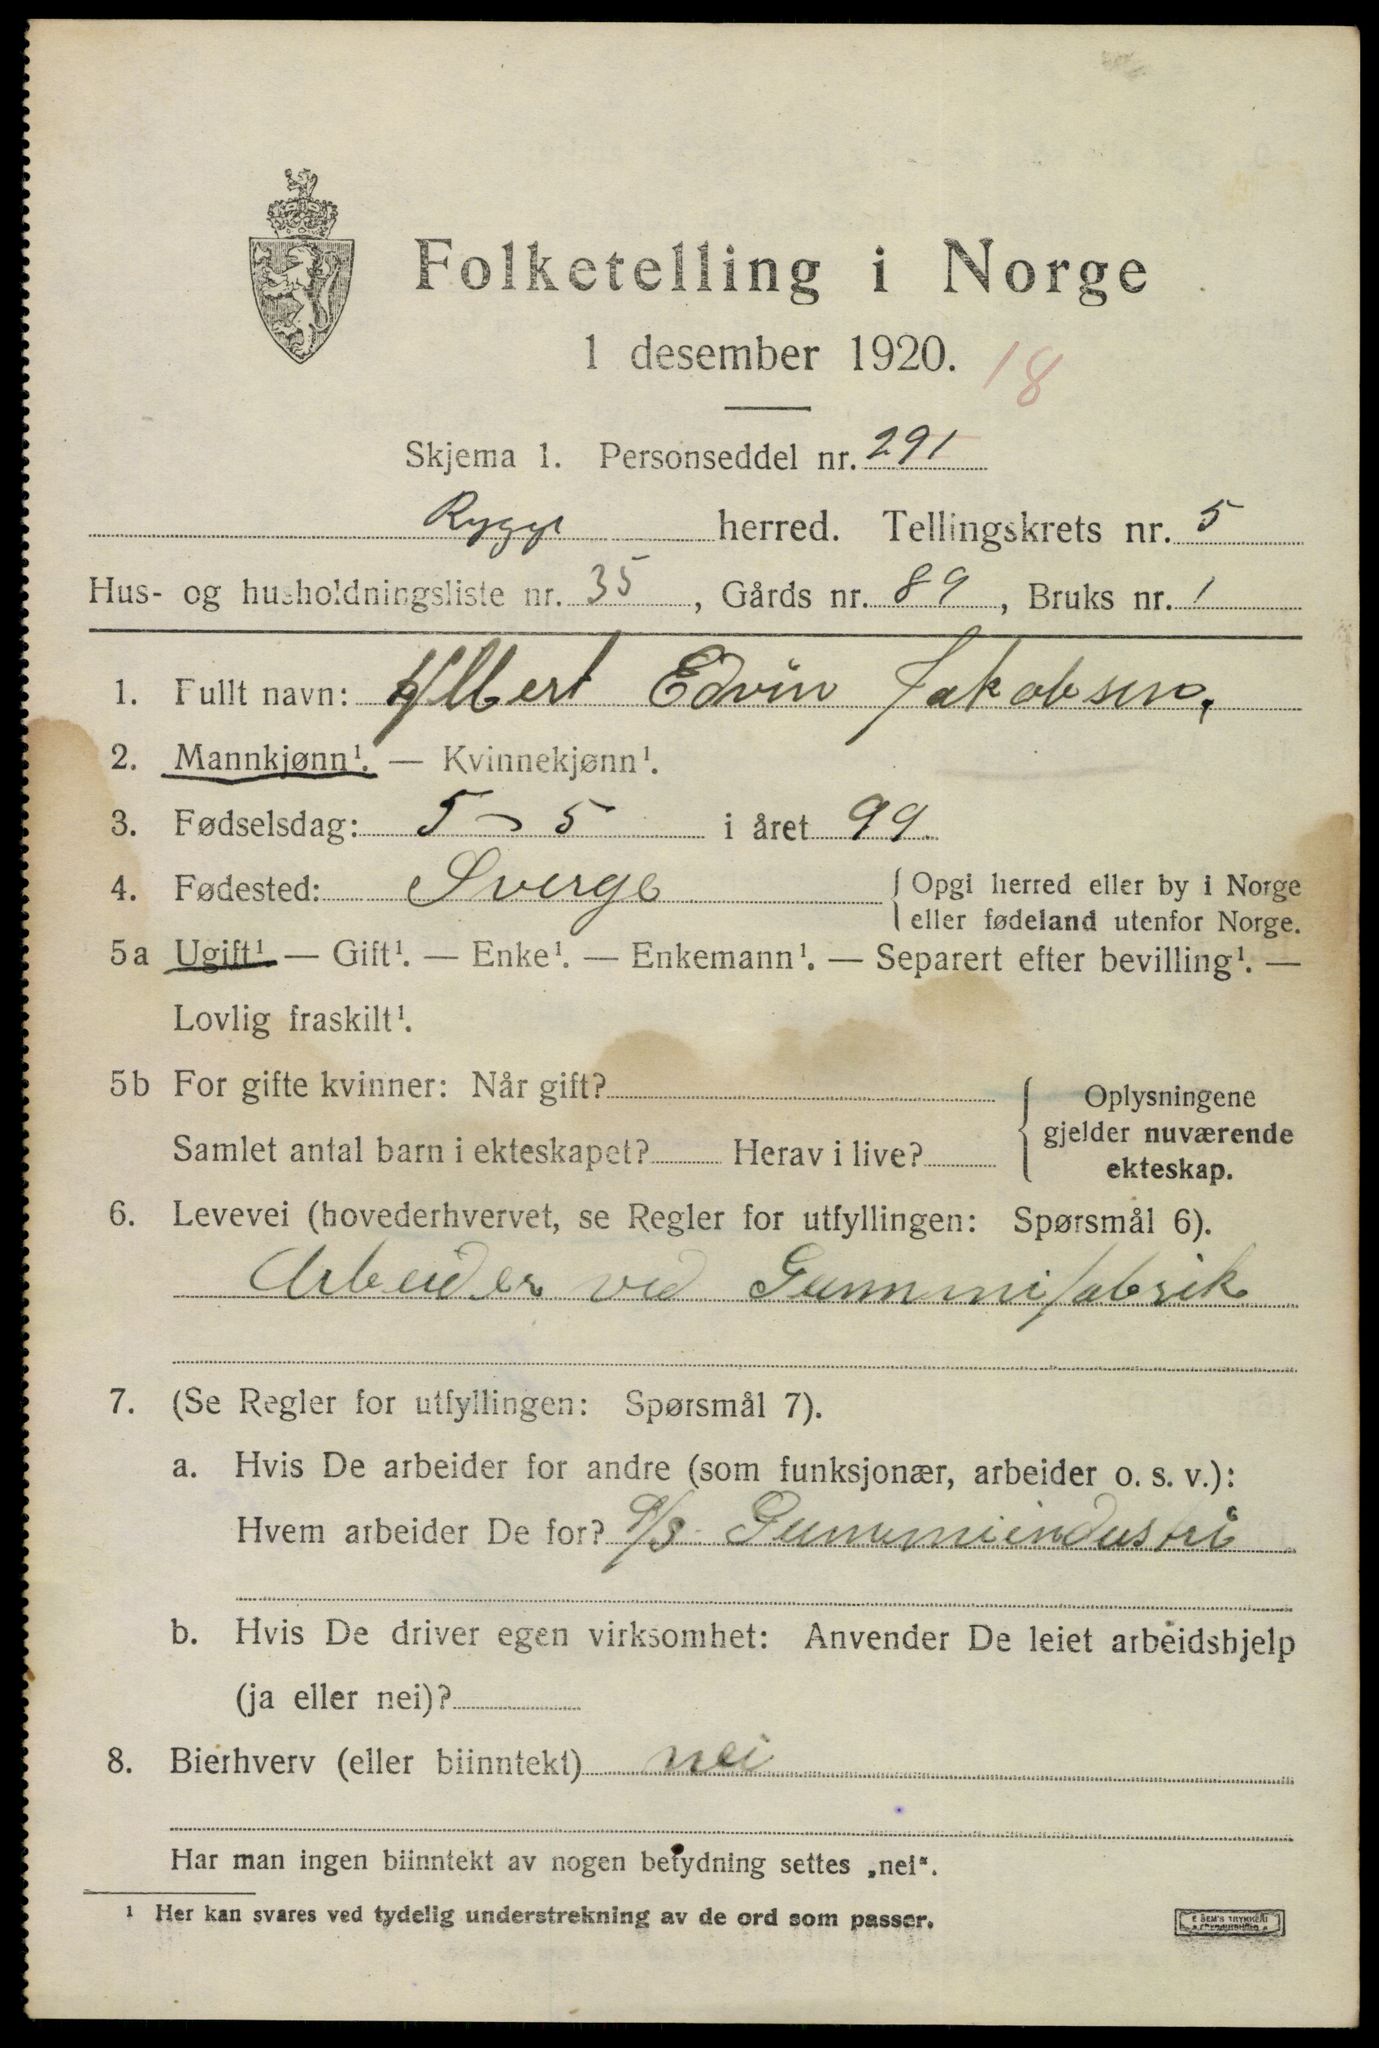 Folketelling i Norge
1 desember 1920.
18
Skjema 1. Personseddel nr. 291
Rygge herred. Tellingskrets nr. 5
Hus- og husholdningsliste nr. 35, Gårds nr. 89, Bruks nr. 1
1. Fullt navn: Albert Edvin Jakobsen.
2. Mannkjønn¹. — Kvinnekjønn¹.
3. Fødselsdag: 5 - 5 i året 99
4. Fødested: Sverge { Opgi herred eller by i Norge
eller fødeland utenfor Norge.
5a Ugift¹. — Gift¹. — Enke¹. — Enkemann¹. — Separert efter bevilling¹. —
Lovlig fraskilt¹.
5b For gifte kvinner: Når gift?
Samlet antal barn i ekteskapet? Herav i live?
Oplysningene
gjelder nuværende
ekteskap.
6. Levevei (hovederhvervet, se Regler for utfyllingen: Spørsmål 6).
Arbeider ved Gummifabrik
7. (Se Regler for utfyllingen: Spørsmål 7).
a. Hvis De arbeider for andre (som funksjonær, arbeider o. s. v.):
Hvem arbeider De for? A/S Gummiindustri
b. Hvis De driver egen virksomhet: Anvender De leiet arbeidshjelp
(ja eller nei)?
8. Bierhverv (eller biinntekt) nei
Har man ingen biinntekt av nogen betydning settes „nei“.
¹ Her kan svares ved tydelig understrekning av de ord som passer.